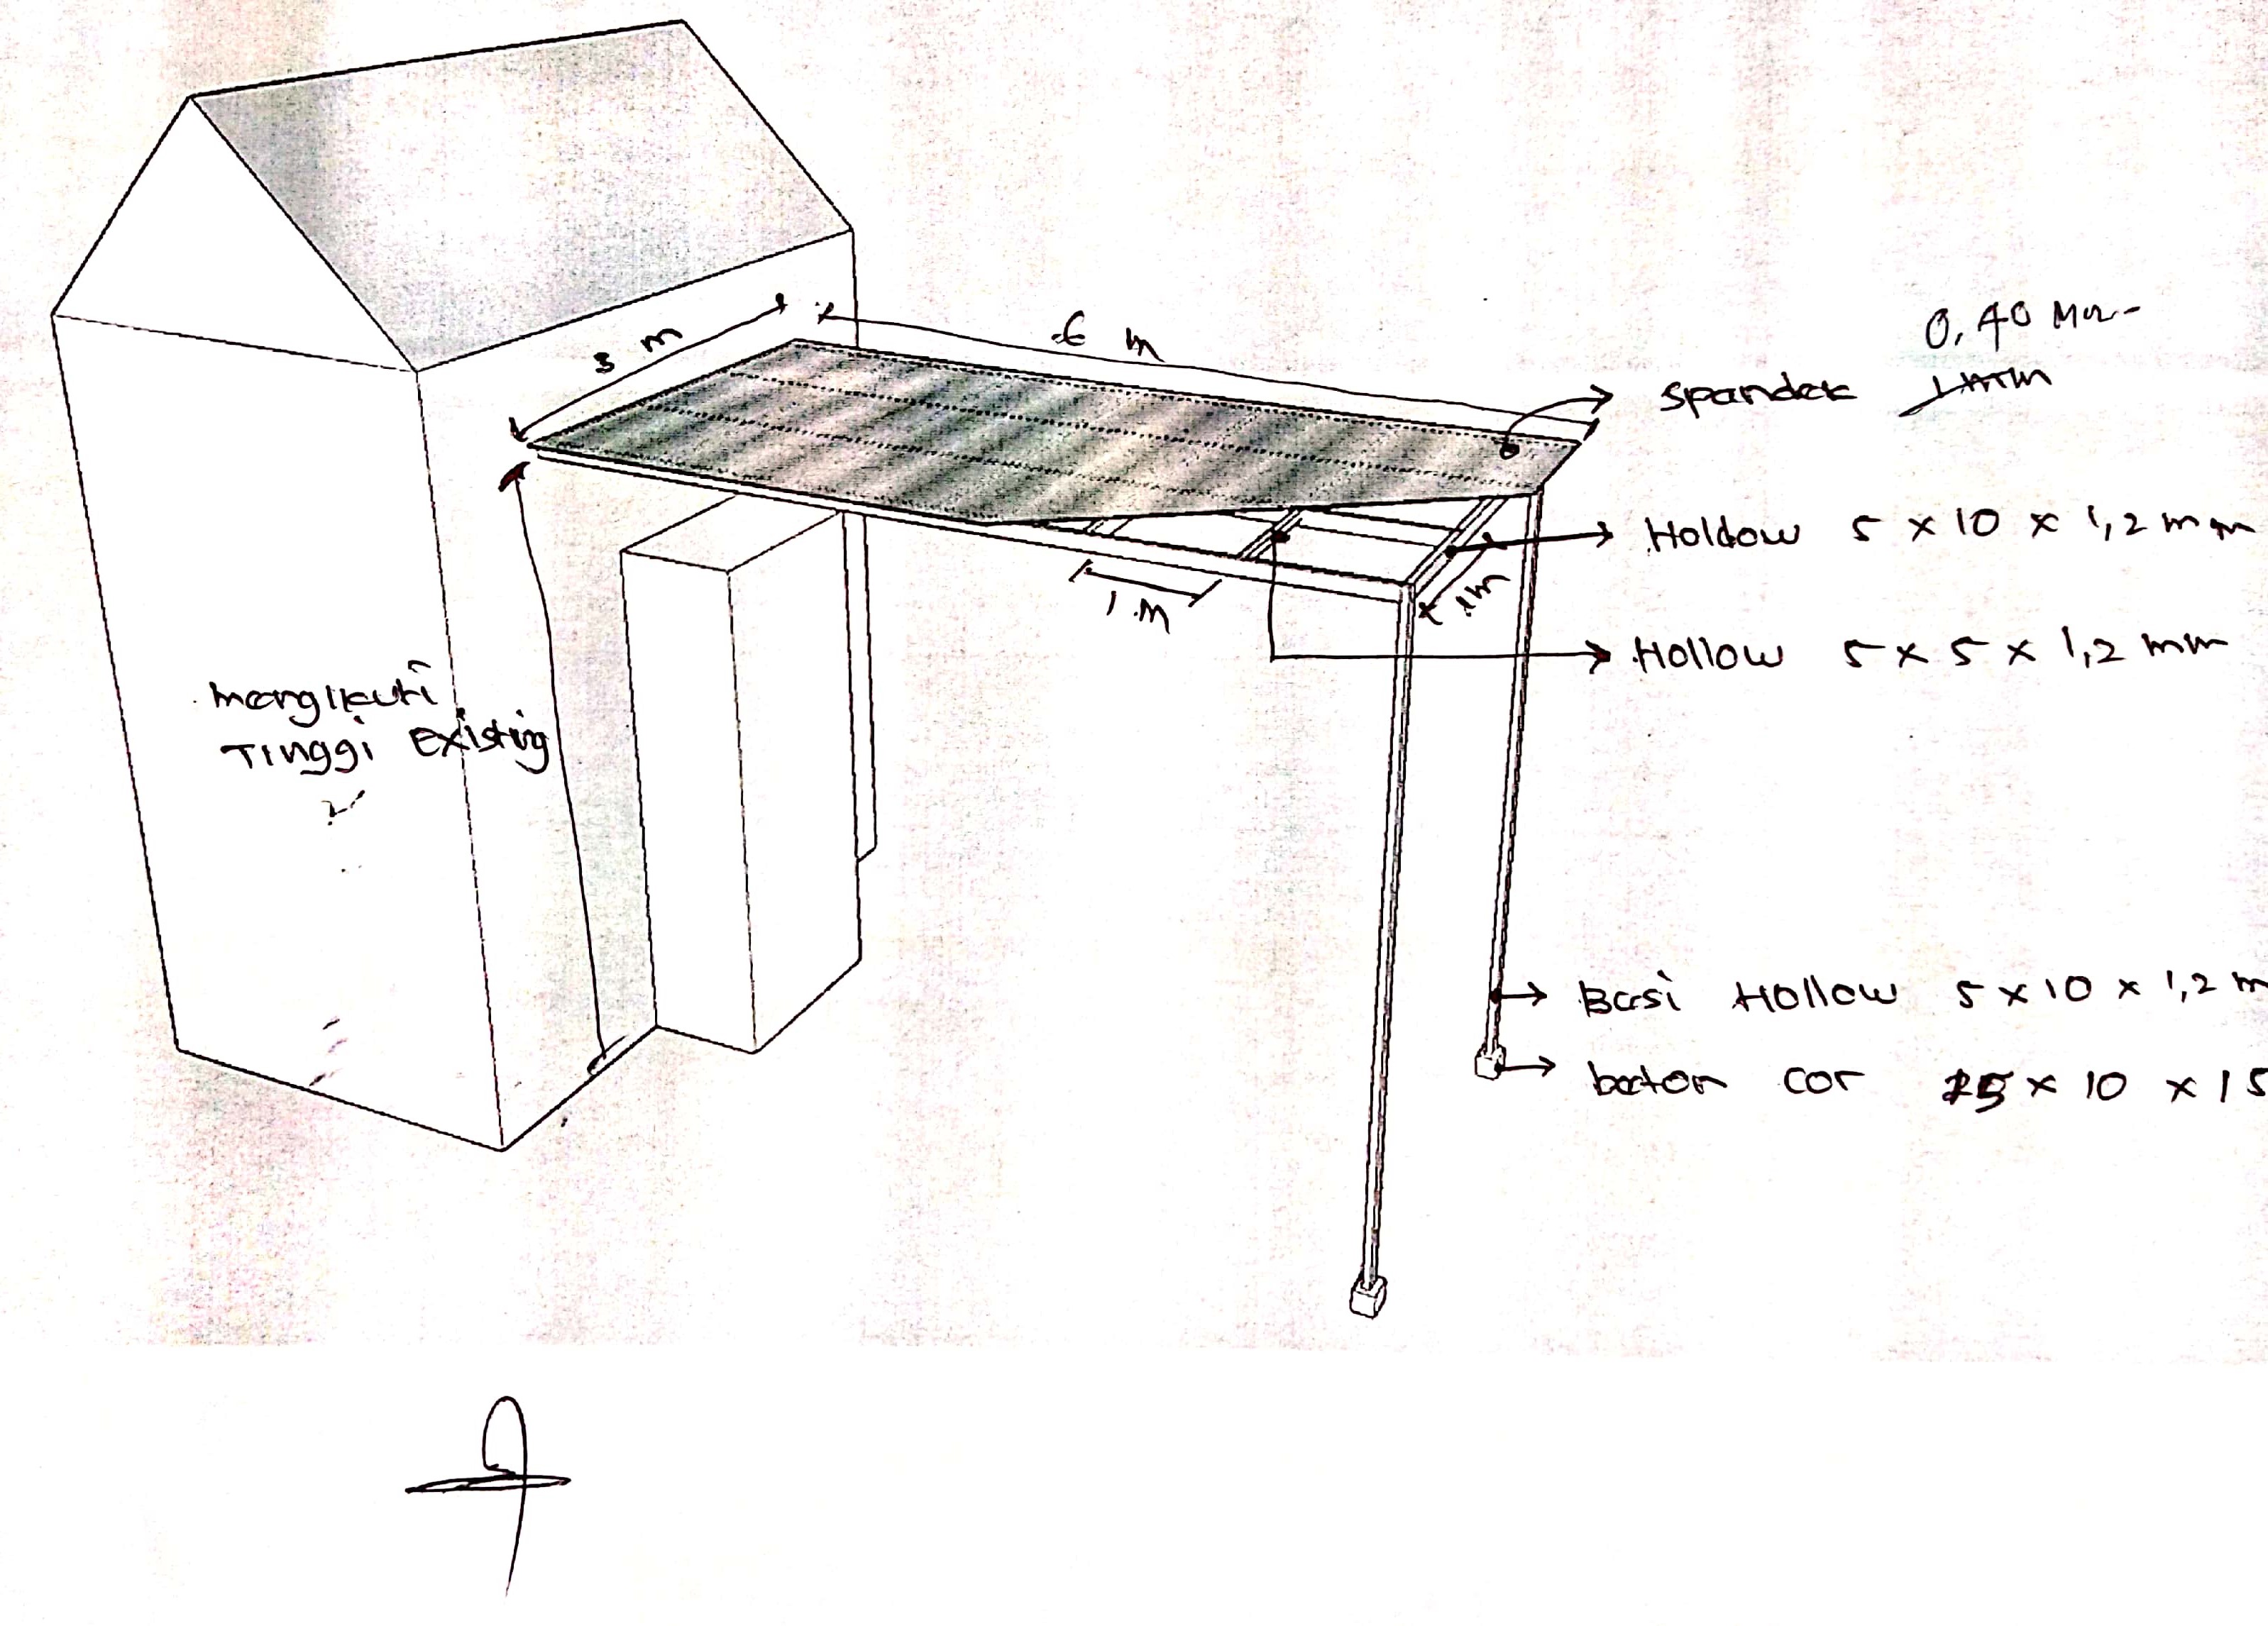 3 m
6 m
0,40 Mm
Spandek
Holdow 5 x 10 x 1,2 mm
1 m
1m
Hollow 5 x 5 x 1,2 mm
mengikuti
Tinggi Existing
Besi Hollow 5 x 10 x 1,2 m
beton cor 25 x 10 x 15